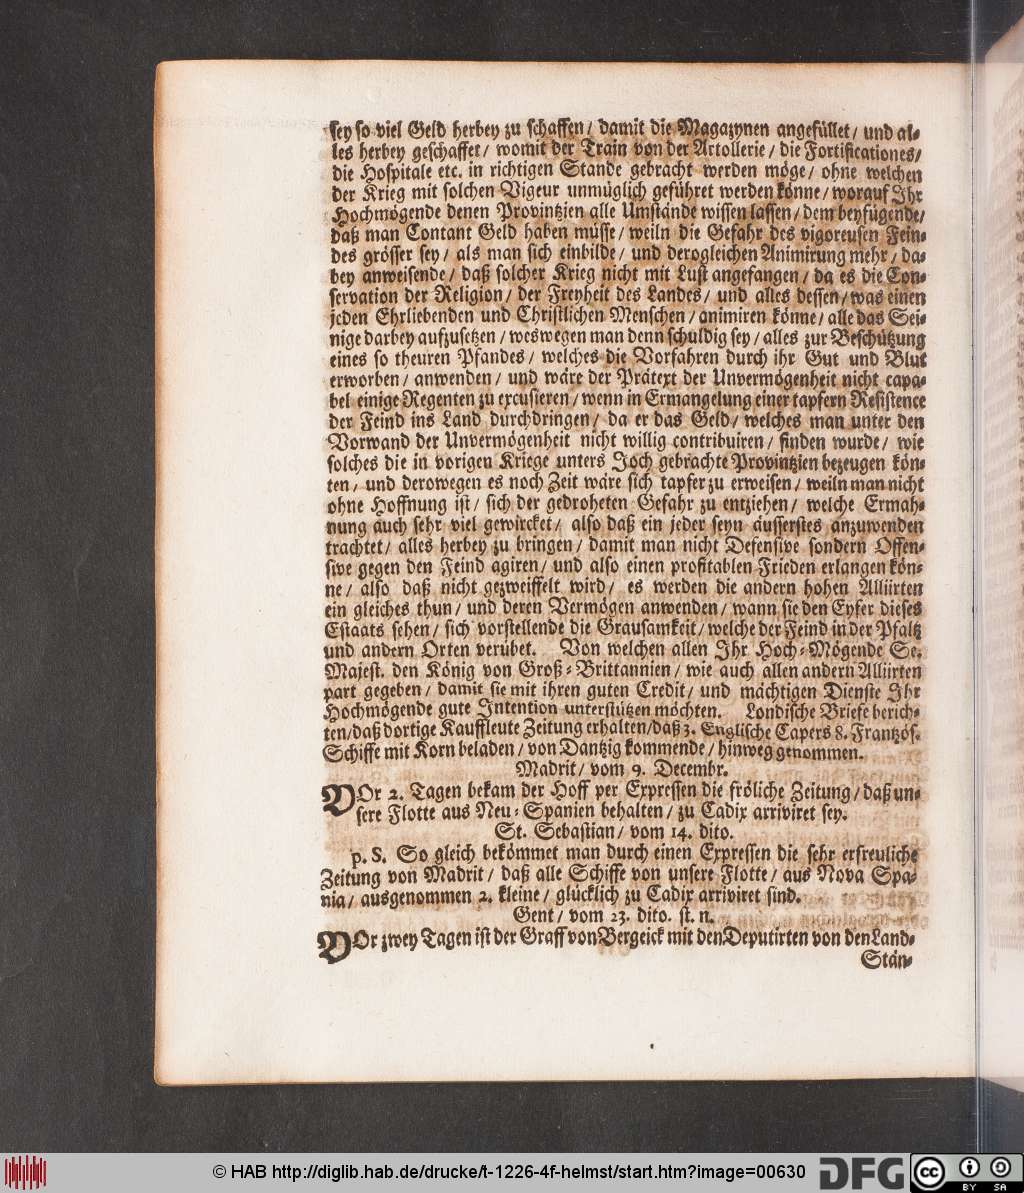 sey so viel Geld herbey zu schaffen / damit die Magazynen angefüllet / und al-
les herbey geschaffet / womit der Train von der Artollerie / die Fortificationes /
die Hospitale etc. in richtigen Stande gebracht werden möge / ohne welchen
der Krieg mit solchen Vigeur unmüglich geführet werden könne / worauf Ihr
Hochmögende denen Provintzien alle Umstände wissen lassen / dem beyfügende /
daß man Contant Geld haben müsse / weiln die Gefahr des vigoreusen Fein-
des grösser sey / als man sich einbilde / und derogleichen Animirung mehr / da-
bey anweisende / daß solcher Krieg nicht mit Lust angefangen / da es die Con-
servation der Religion / der Freyheit des Landes / und alles dessen / was einen
jeden Ehrliebenden und Christlichen Menschen / animiren könne / alle das Sei-
nige darbey aufzusetzen / weswegen man denn schuldig sey / alles zur Beschützung
eines so theuren Pfandes / welches die Vorfahren durch ihr Gut und Blut
erworben / anwenden / und wäre der Prätext der Unvermögenheit nicht capa-
bel einige Regenten zu excusieren / wenn in Ermangelung einer tapfern Resistence
der Feind ins Land durchdringen / da er das Geld / welches man unter den
Vorwand der Unvermögenheit nicht willig contribuiren / finden wurde / wie
solches die in vorigen Kriege unters Joch gebrachte Provintzien bezeugen kön-
ten / und derowegen es noch Zeit wäre sich tapfer zu erweisen / weiln man nicht
ohne Hoffnung ist / sich der gedroheten Gefahr zu entziehen / welche Ermah-
nung auch sehr viel gewircket / also daß ein jeder seyn äusserstes anzuwenden
trachtet / alles herbey zu bringen / damit man nicht Defensive sondern Offen-
sive gegen den Feind agiren / und also einen profitablen Frieden erlangen kön-
ne / also daß nicht gezweiffelt wird / es werden die andern hohen Alliirten
ein gleiches thun / und deren Vermögen anwenden / wann sie den Eyfer dieses
Estaats sehen / sich vorstellende die Grausamkeit / welche der Feind in der Pfaltz
und andern Orten verübet. Von welchen allen Ihr Hoch-Mögende Se.
Majest. den König von Groß-Brittannien / wie auch allen andern Alliirten
part gegeben / damit sie mit ihren guten Credit / und mächtigen Dienste Ihr
Hochmögende gute Intention unterstützen möchten. Londische Briefe berich-
ten / daß dortige Kauffleute Zeitung erhalten / daß 3. Englische Capers 8. Frantzös.
Schiffe mit Korn beladen / von Dantzig kommende / hinweg genommen.
Madrit / vom 9. Decembr.
VOr 2. Tagen bekam der Hoff per Expressen die fröliche Zeitung / daß un-
sere Flotte aus Neu-Spanien behalten / zu Cadix arriviret sey.
St. Sebastian / vom 14. dito.
p. S. So gleich bekömmet man durch einen Expressen die sehr erfreuliche
Zeitung von Madrit / daß alle Schiffe von unsere Flotte / aus Nova Spa-
nia / ausgenommen 2. kleine / glücklich zu Cadix arriviret sind.
Gent / vom 23. dito. st. n.
VOr zwey Tagen ist der Graff von Bergeick mit den Deputirten von den Land-
Stän-
© HAB http://diglib.hab.de/drucke/t-1226-4f-helmst/start.htm?image=00630
DFG
cc BY SA